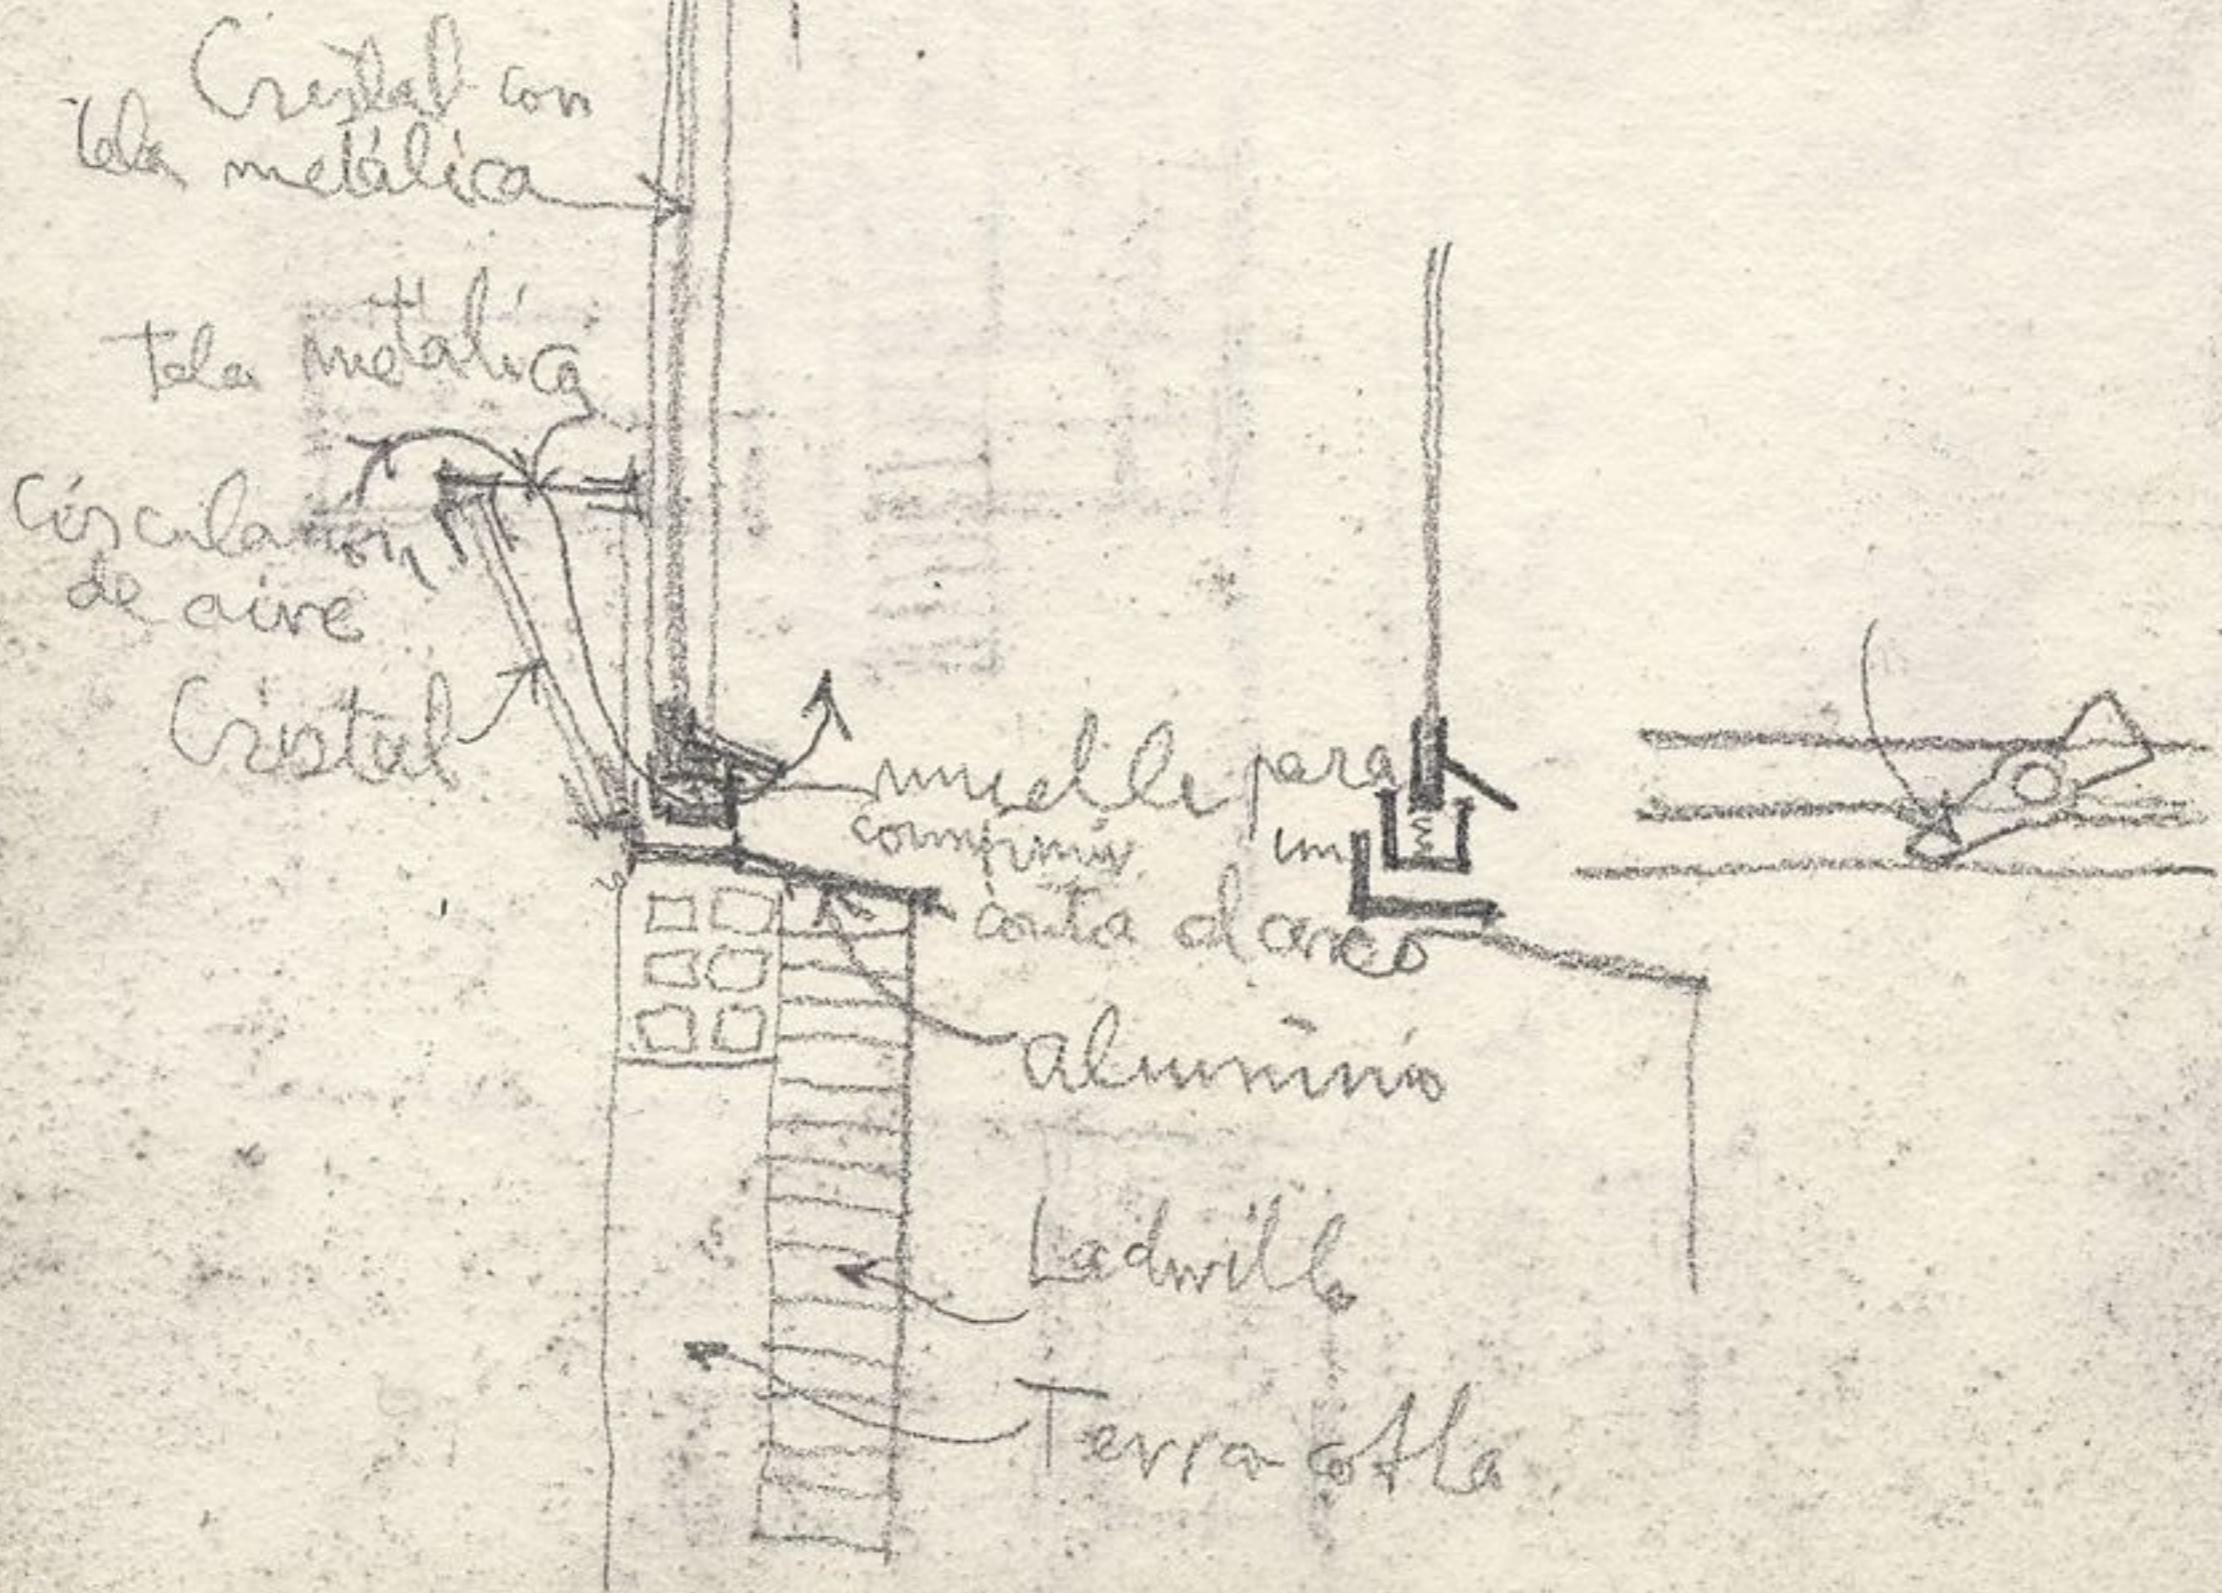 Cristal con
tela metálica
Tela metálica
Circulación
de aire
Cristal
muelle para
comprimir
contra el arco
aluminio
Ladrillo
Terra cotta